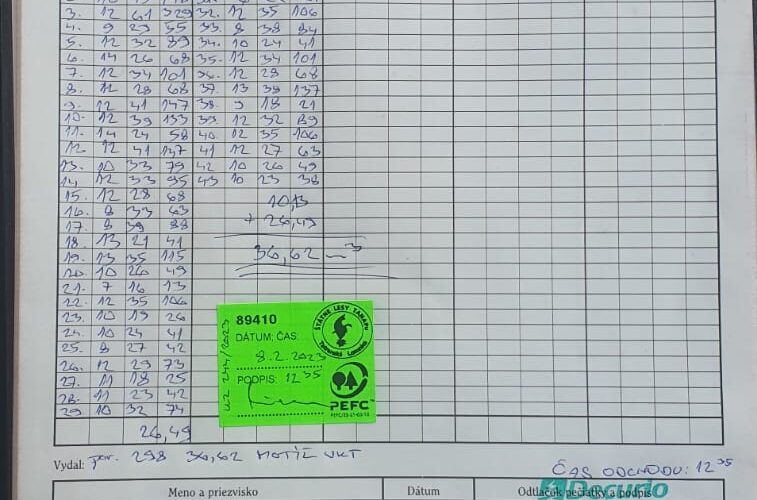 3. 12 41 329 32. 12 35 106
4. 9 29 55 33. 8 38 84
5. 12 32 89 34. 10 24 41
6. 14 26 68 35. 12 34 101
7. 12 34 101 36. 12 28 68
8. 12 28 68 37. 13 39 137
9. 12 41 147 38. 9 18 21
10. 12 39 133 39 12 32 89
11. 14 24 58 40. 12 35 106
12. 12 41 147 41 12 27 63
13. 10 33 79 42 10 26 49
14 12 33 95 43 10 23 38
15. 12 28 68 10,13
16. 8 33 63
17. 8 39 88 + 26,49
18. 13 21 41
19. 13 35 115 36,62 m3
20. 10 26 49
21. 7 16 13
22. 12 35 106
23. 10 19 26
24. 10 24 41
25. 8 27 42
26. 12 29 73
27. 11 18 25
28. 11 23 42
29 10 32 74
26,49
89410
DÁTUM; ČAS:
8.2.2023
PODPIS: 12 35
ŠTÁTNE LESY TANAPU
Tatranská Lomnica
PEFC
Vydal: por. 298 36,62
ČAS ODCHODU: 12 35
Meno a priezvisko Dátum Odtlačok pečiatky a podpis
Docurlo